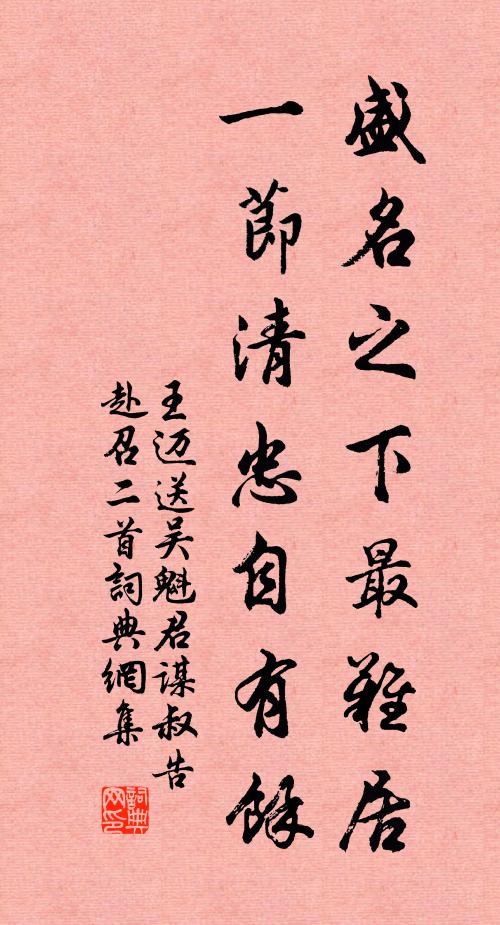 盛名之下最難居
一節清忠自有餘
王迈送吴魁君谋叔告
赴召二首詞典網集
詞典网印